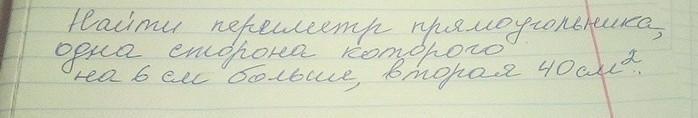 Найти периметр прямоугольника,
одна сторона которого
на 6 см больше, вторая 40 см².